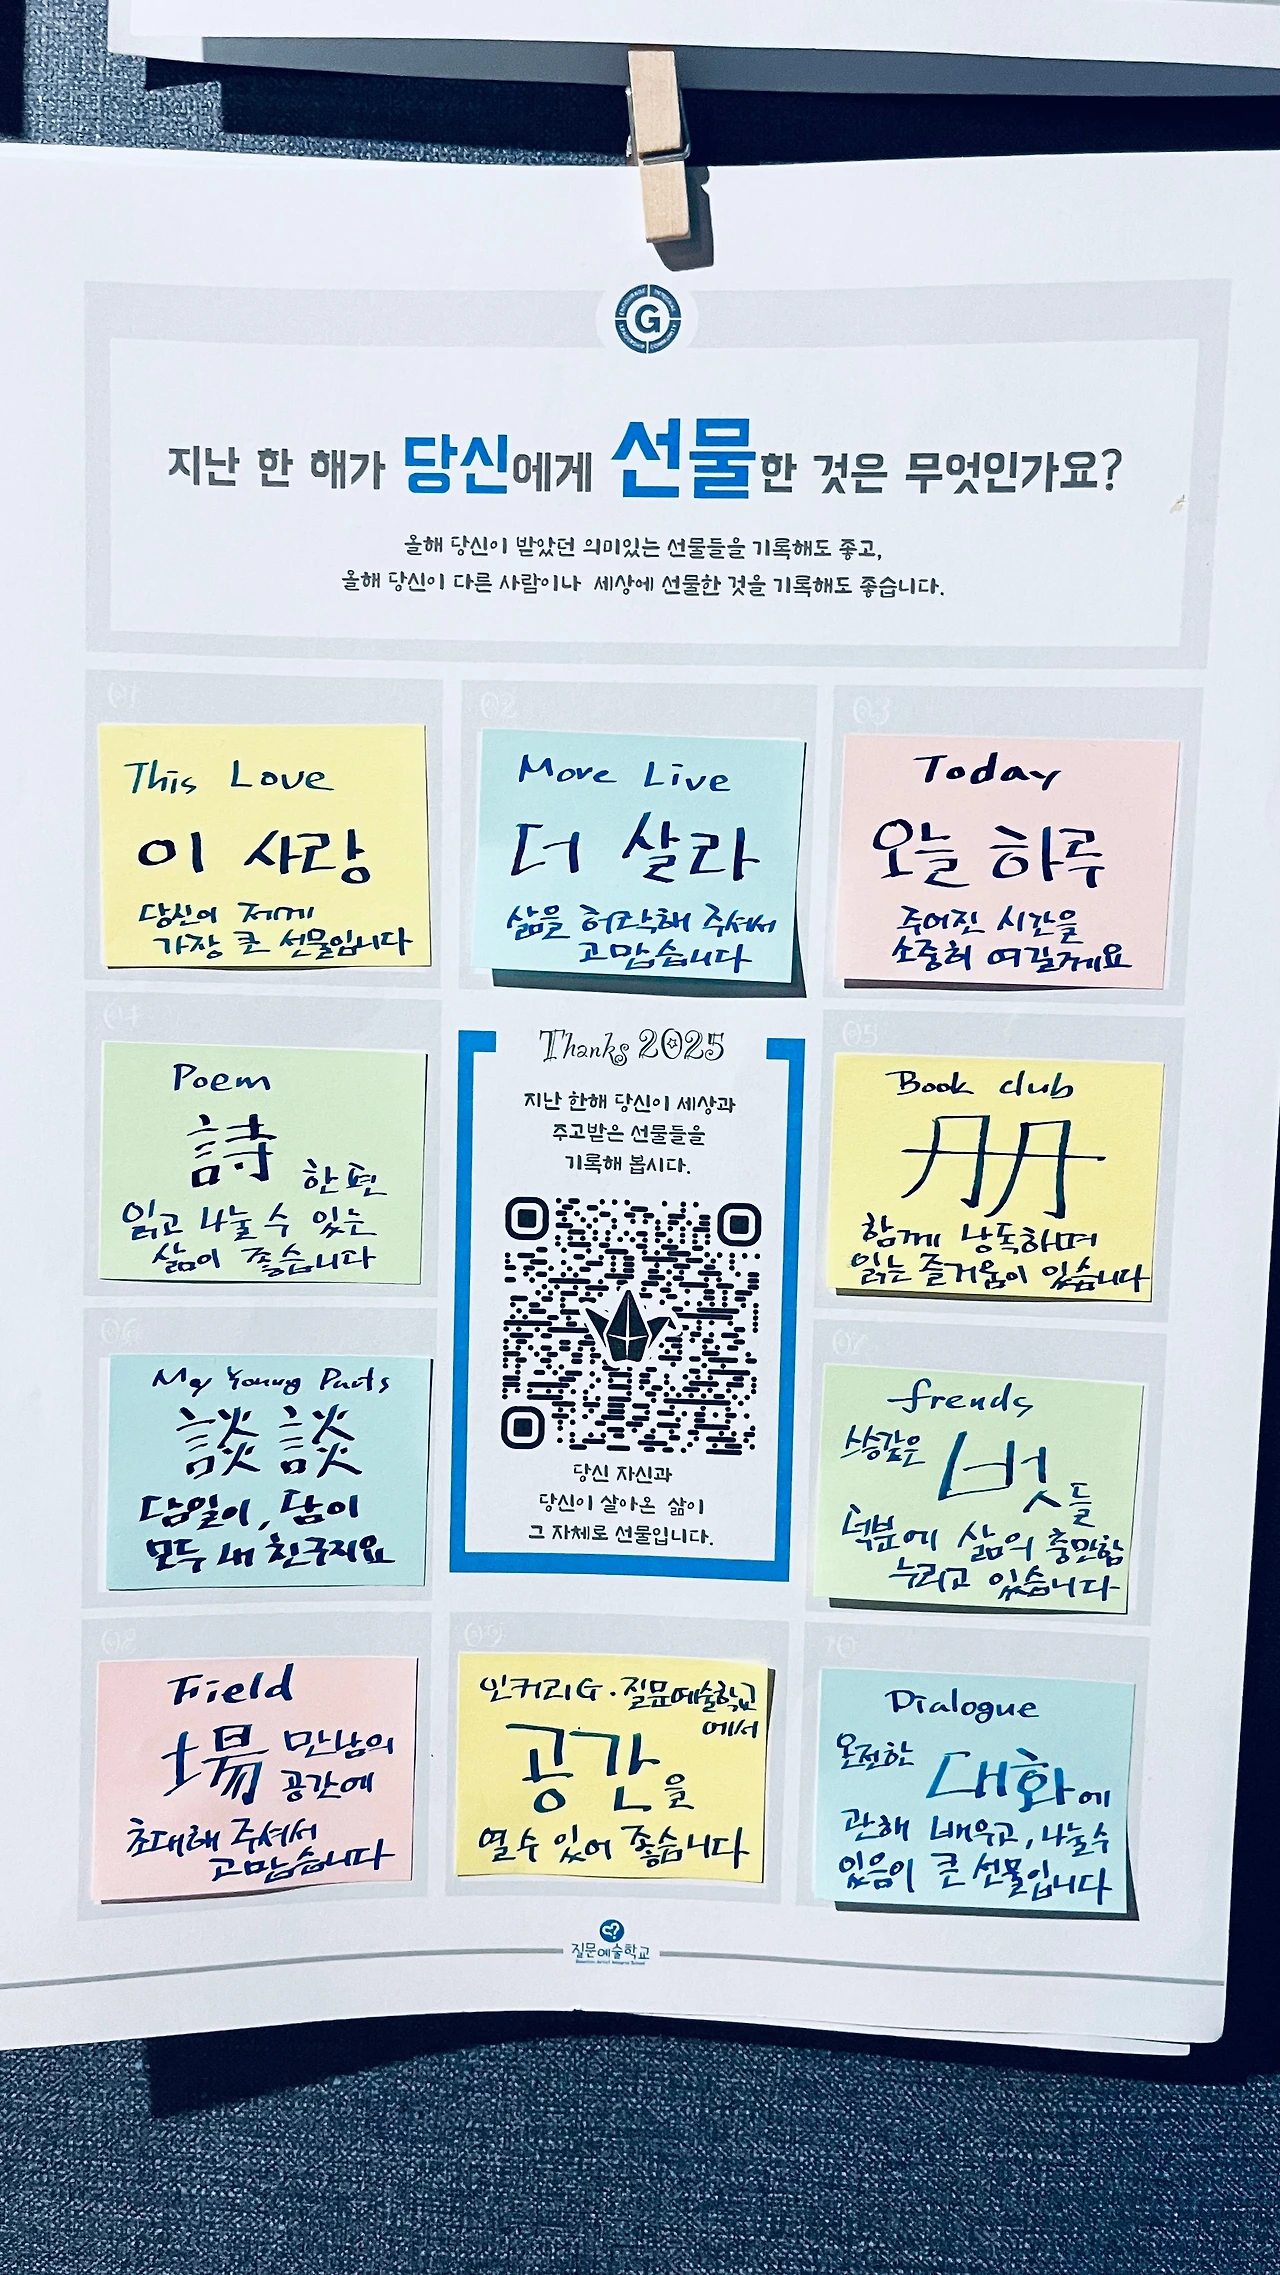 ENCOURAGE INTEGRAL
LEADERSHIP COMMUNITY
G
지난 한 해가 당신에게 선물한 것은 무엇인가요?
올해 당신이 받았던 의미있는 선물들을 기록해도 좋고,
올해 당신이 다른 사람이나 세상에 선물한 것을 기록해도 좋습니다.
01
This Love
이 사랑
당신이 저에게
가장 큰 선물입니다
02
More Live
더 살라
삶을 허락해 주셔서
고맙습니다
03
Today
오늘 하루
주어진 시간을
소중히 여길게요
04
Poem
詩 한편
읽고 나눌 수 있는
삶이 좋습니다
Thanks 2025
지난 한해 당신이 세상과
주고받은 선물들을
기록해 봅시다.
당신 자신과
당신이 살아온 삶이
그 자체로 선물입니다.
05
Book club
册
함께 낭독하며
읽는 즐거움이 있습니다
06
My Young Parts
談 談
담일이, 담이
모두 내 친구지요
07
frends
스승같은 벗들
덕분에 삶의 충만함
누리고 있습니다
08
Field
場 만남의
공간에
초대해 주셔서
고맙습니다
09
인커리G·질문예술학교
에서
공간을
열 수 있어 좋습니다
10
Dialogue
온전한 대화에
관해 배우고, 나눌 수
있음이 큰 선물입니다
질문예술학교